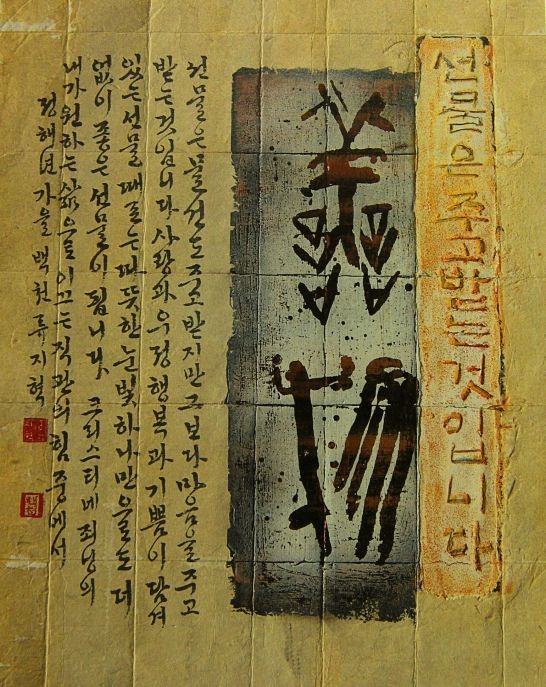 선물은 주고받는 것입니다
선물은 물건도 주고 받지만 그보다 마음을 주고
받는 것입니다 사랑과 우정 행복과 기쁨이 담겨
있는 선물 때로는 따뜻한 눈빛 하나만으로도 더
없이 좋은 선물이 됩니다. 크리스티네 죄낭의
내가 원하는 삶으로 이끄는 직관의 힘 중에서
정해年 가을 백천 류지혁